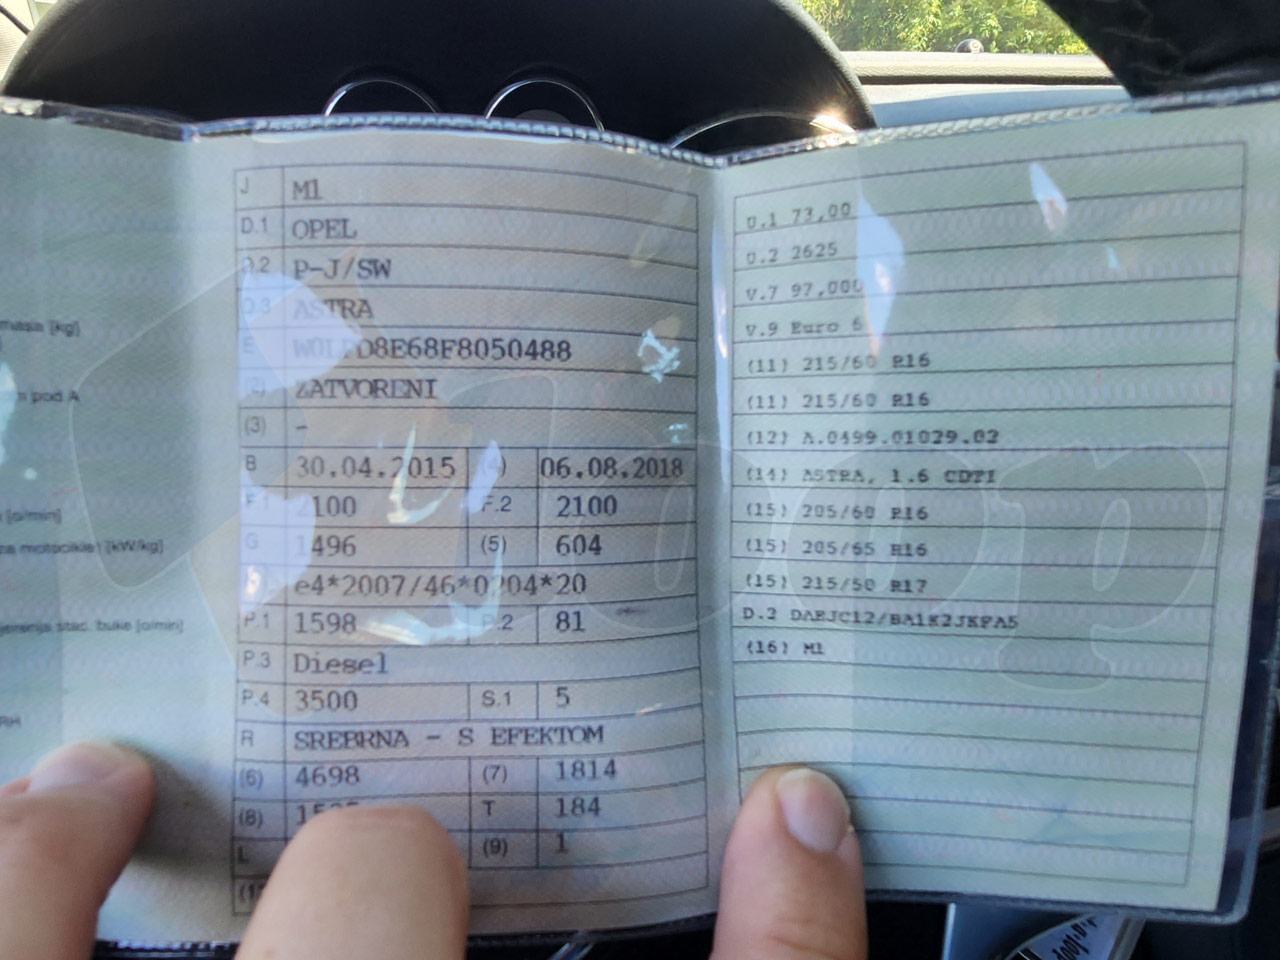 masa [kg]
pod A
[o/min]
motocikle) [kW/kg]
jerenja stac. buke [o/min]
RH
J M1
D.1 OPEL
D.2 P-J/SW
D.3 ASTRA
E W0LPD8E68F8050488
(2) ZATVORENI
(3) -
B 30.04.2015 (4) 06.08.2018
F.1 2100 F.2 2100
G 1496 (5) 604
e4*2007/46*0204*20
P.1 1598 P.2 81
P.3 Diesel
P.4 3500 S.1 5
R SREBRNA - S EFEKTOM
(6) 4698 (7) 1814
(8) T 184
L (9) 1
U.1 73,00
U.2 2625
V.7 97,000
V.9 Euro 6
(11) 215/60 R16
(11) 215/60 R16
(12) A.0499.01029.02
(14) ASTRA, 1.6 CDTI
(15) 205/60 R16
(15) 205/65 R16
(15) 215/50 R17
D.2 DAEJC12/BA1K2JKFA5
(16) M1